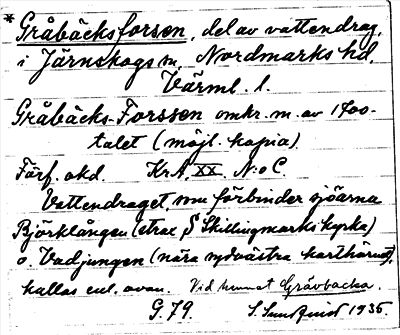 * Gråbäcksforsen, del av vattendrag,
i Järnskogs sn, Nordmarks hd,
Värml. l.
Gråbäcks-Forssen omkr. m. av 1700-
talet (möjl. kopia)
Förf. okd. KrA, XX. N:o C.
Vattendraget, som förbinder sjöarna
Björklången (strax S Skillingmarks kyrka)
o. Vadjungen (nära sydvästra karthörnet),
kallas enl. ovan. Vid hemmet Grävbacka.
G.79. S. 1935.